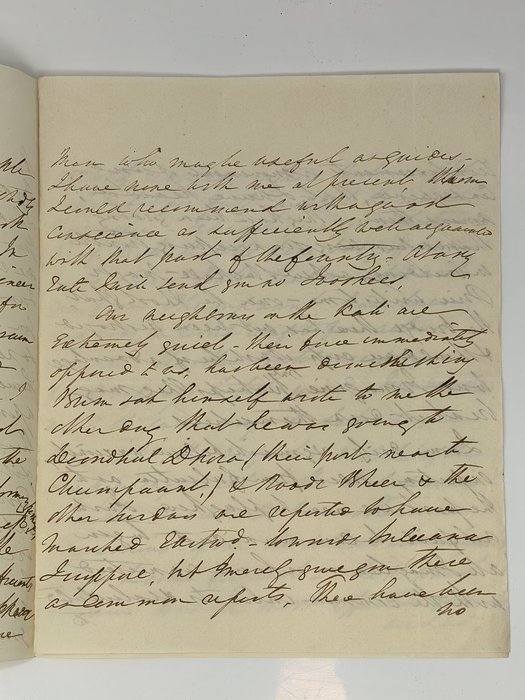 Men who may be useful as guides -
I have none with me at present, whom
I could recommend with a good
conscience as sufficiently well acquainted
with that part of the country - At any
rate I will send you no
Our neighbours on the Kali are
extremely quiet - their force immediately
opposed to us, has been diminishing
Bum Sah himself wrote to me the
other day that he was going to
Dhoora (their port near to
) & Bheer & the
other Sirdars are reported to have
marched Eastwd - towards
I suppose, but I merely give you these
as common reports. There have been
no